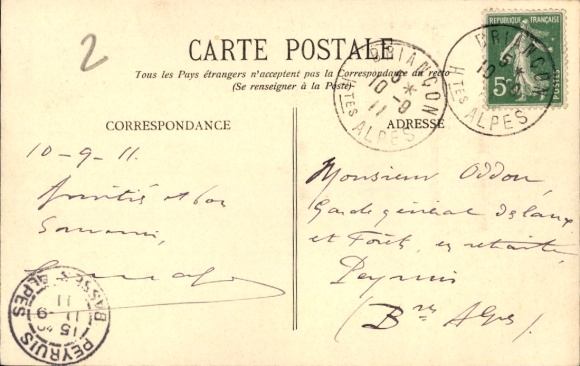 2
CARTE POSTALE
Tous les Pays étrangers n'acceptent pas la Correspondance au recto
(Se renseigner à la Poste)
RÉPUBLIQUE FRANÇAISE
5c
POSTES
BRIANÇON
5 *
10 -9
11
HTES ALPES
BRIANÇON
5 *
10 -9
11
HTES ALPES
CORRESPONDANCE
10-9-11.
Amitiés et bon
Souvenir,
ADRESSE
Monsieur Oddon,
Garde général des Eaux
et Forêts, en retraite,
Peyruis
(Bses Alpes)
PEYRUIS
15
11 -9
11
BASSES ALPES